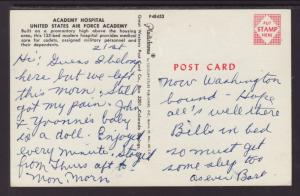 ACADEMY HOSPITAL
UNITED STATES AIR FORCE ACADEMY
Built on a promontory high above the housing
area, this 132-bed modern hospital provides medical
care for cadets, assigned military personnel and
their dependents.
P48453
PLACE
STAMP
HERE
POST CARD
21st
Hi! Guess I belong
here but we left
this morn. Still
got my pain. John
& Yvonne's baby
is a doll. Enjoyed
every minute. Stayed
from Thurs aft to
Mon. Morn
Now Washington
bound - Hope
all's well there
Bill's in bed
so must get
some sleep too
As ever Bart